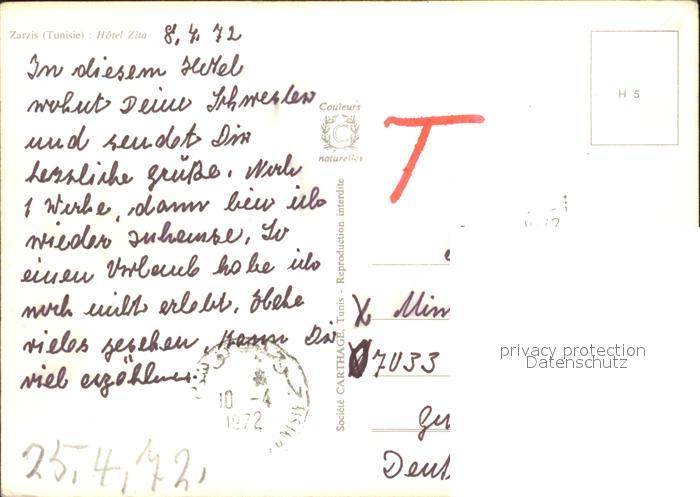 Zarzis (Tunisie) : Hôtel Zita
8.4.72
In diesem Hotel
wohnt Deine Schwester
und sendet Dir
herzliche Grüße. Noch
1 Woche, dann bin ich
wieder zuhause. So
einen Urlaub habe ich
noch nicht erlebt. Habe
vieles gesehen. Kann Dir
viel erzählen.
25.4.72.
Couleurs
C
naturelles
Société CARTHAGE, Tunis - Reproduction interdite
10 -4
1972
T
H 5
X
7033
Deut
privacy protection
Datenschutz